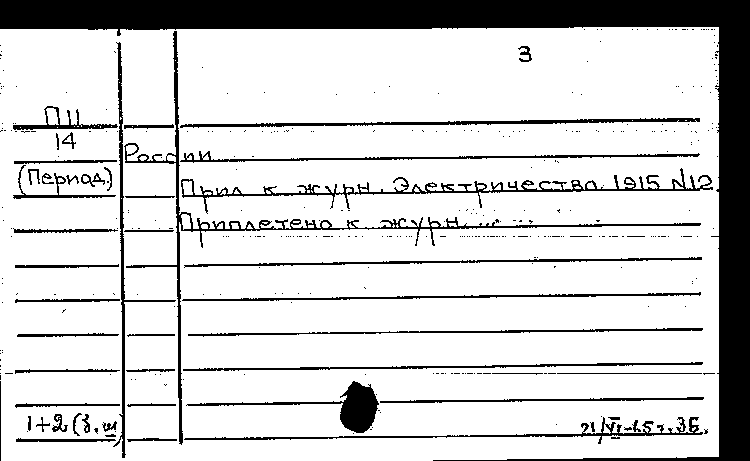 3
П11
14
России
(Период.)
Прил к журн. Электричество. 1915 №12.
Приплетено к журн.
1+2 (
21/VI-65г. ЗБ.